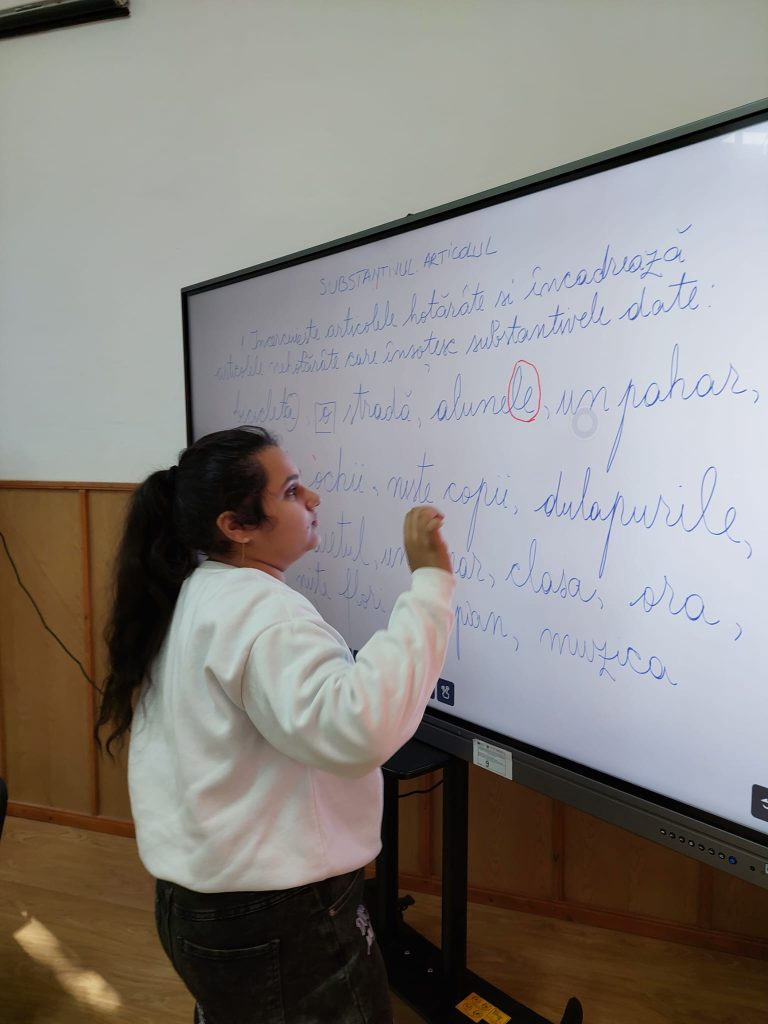 SUBSTANTIVUL. ARTICOLUL
! Încercuiește articolele hotărâte si încadrează
articolele nehotărâte care însoțesc substantivele date:
bicicleta, o stradă, alunele, un pahar,
ochii, niște copii, dulapurile,
clasa, ora,
niste flori pian, muzica
9